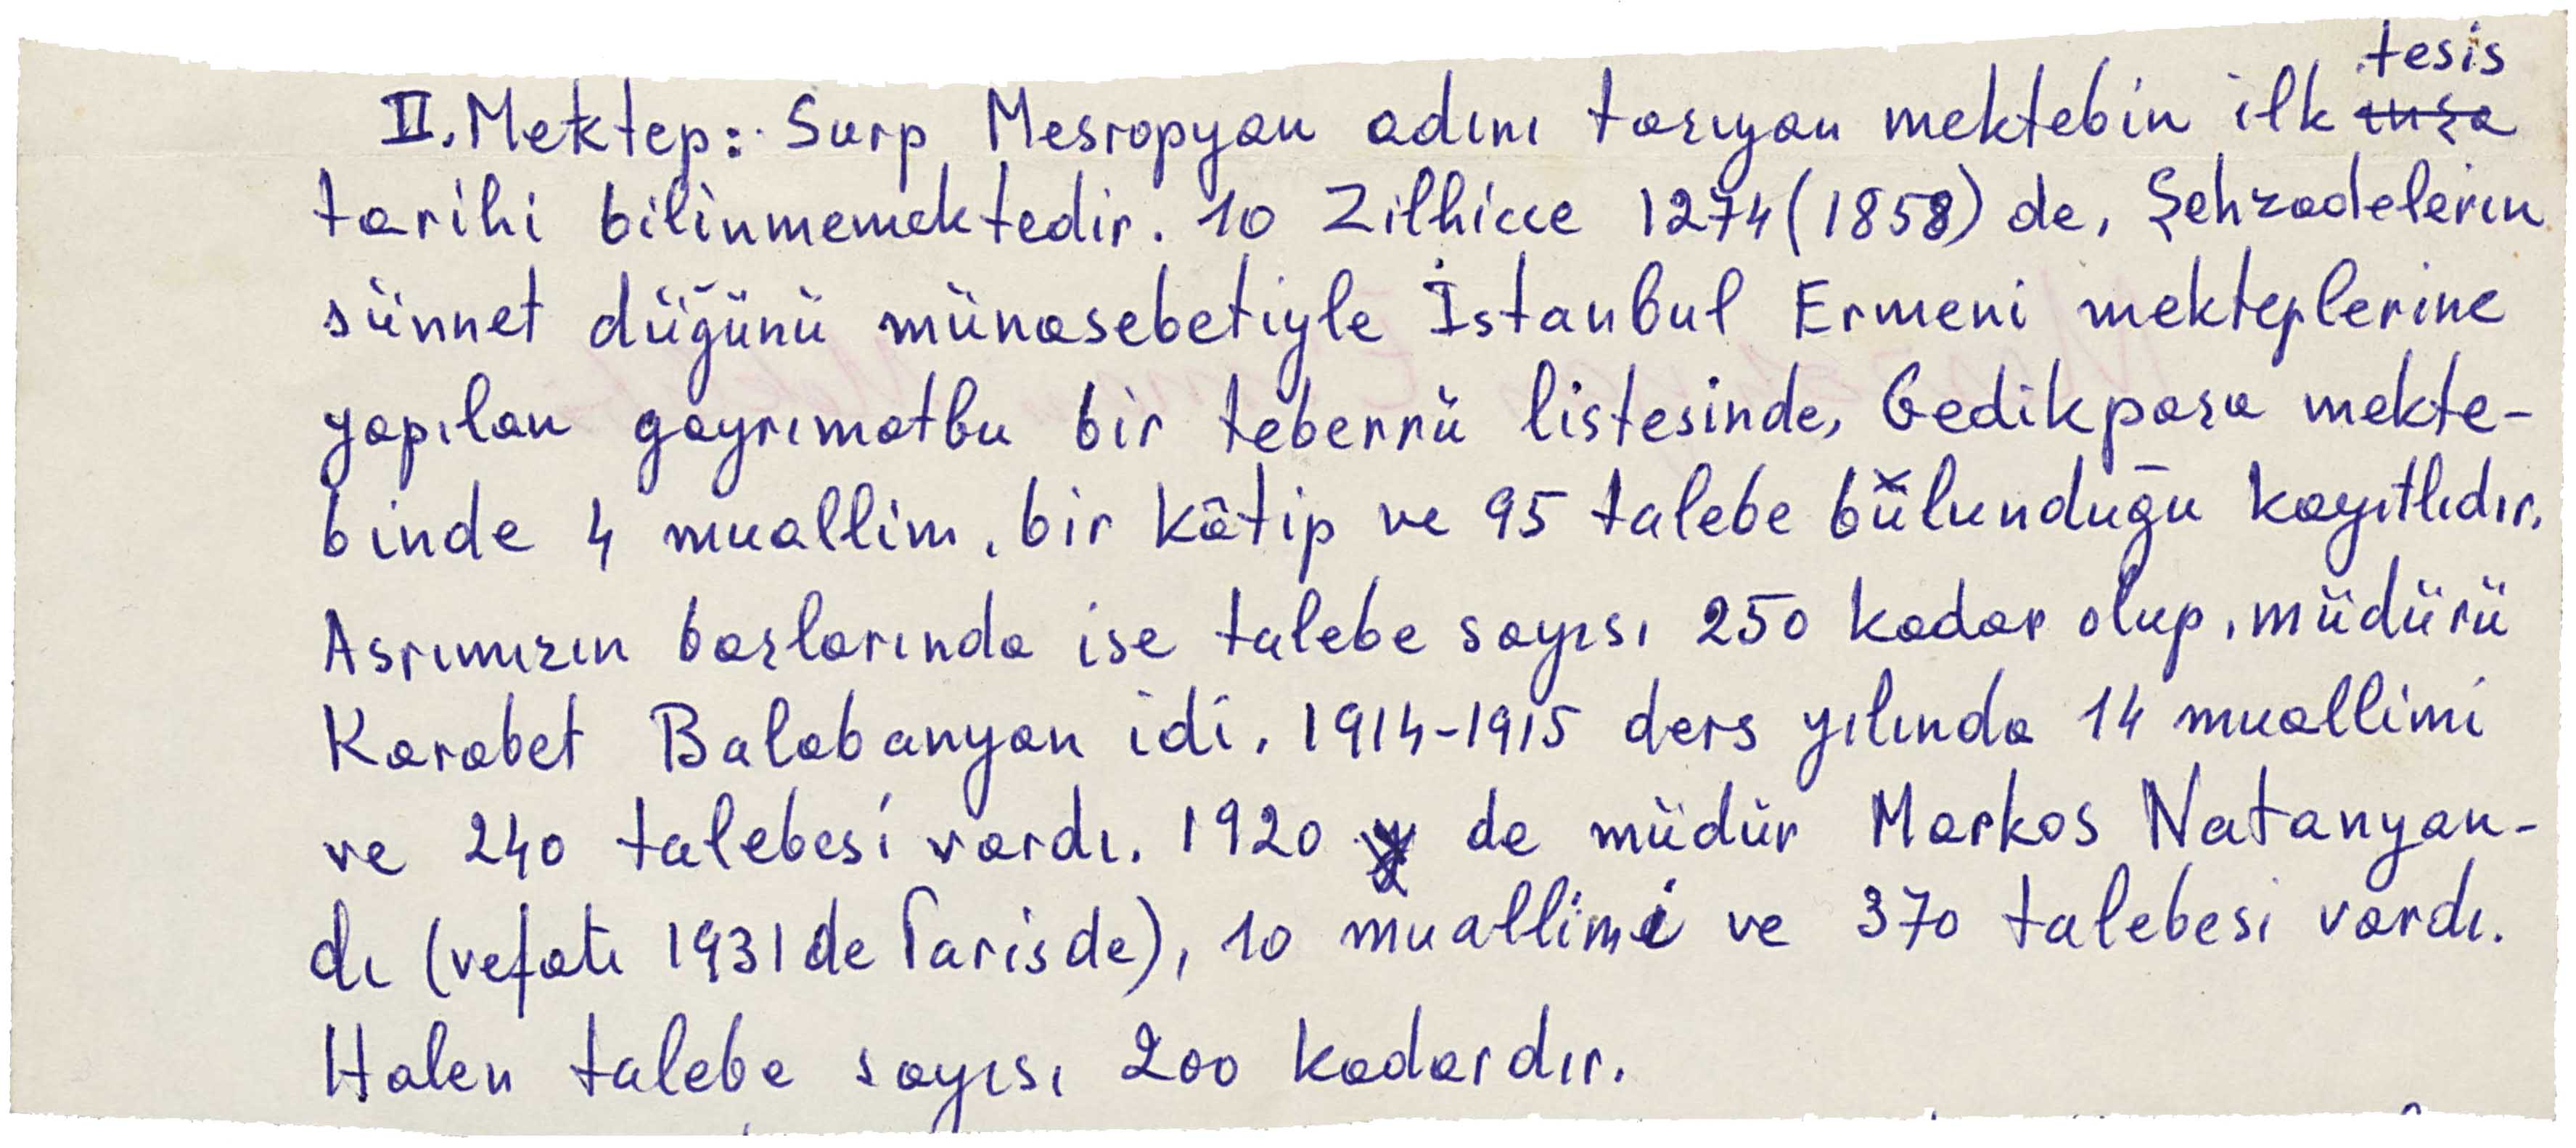 II. Mektep: Surp Mesropyan adını taşıyan mektebin ilk tesis
tarihi bilinmemektedir. 10 Zilhicce 1274 (1858) de, Şehzadelerin
sünnet düğünü münasebetiyle İstanbul Ermeni mekteplerine
yapılan gayrımatbu bir teberrü listesinde, Gedikpaşa mekte-
binde 4 muallim, bir kâtip ve 95 talebe bulunduğu kayıtlıdır.
Asrımızın başlarında ise talebe sayısı 250 kadar olup, müdürü
Karabet Balabanyan idi. 1914-1915 ders yılında 14 muallimi
ve 240 talebesi vardı. 1920 de müdür Markos Natanyan-
dı (vefatı 1931 de Parisde), 10 muallimi ve 370 talebesi vardı.
Halen talebe sayısı 200 kadardır.